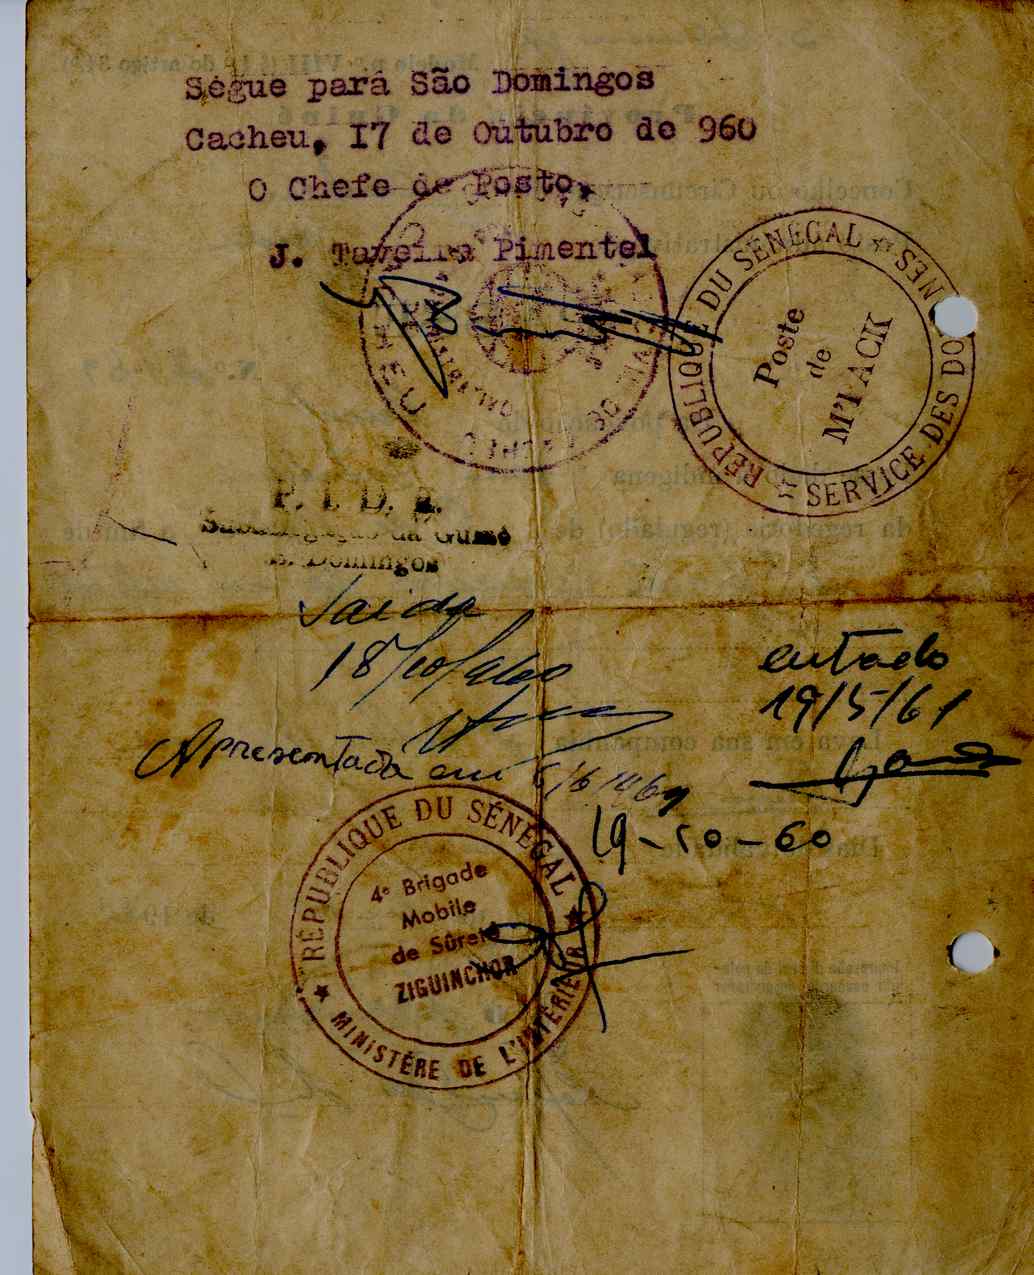 Segue para São Domingos
Cacheu, 17 de Outubro de 960
O Chefe de Posto,
J. Taveira Pimentel
RÉPUBLIQUE DU SÉNÉGAL
SERVICE DES DO NES
Poste
de
M'PACK
P. I. D. E.
Subdelegação da Guiné
S. Domingos
Saida
18/10/960
entrado
19/5/61
Apresentada em
19-10-60
RÉPUBLIQUE DU SÉNÉGAL
4e Brigade
Mobile
de Sûreté
ZIGUINCHOR
MINISTÉRE DE L'INTÉRIEUR